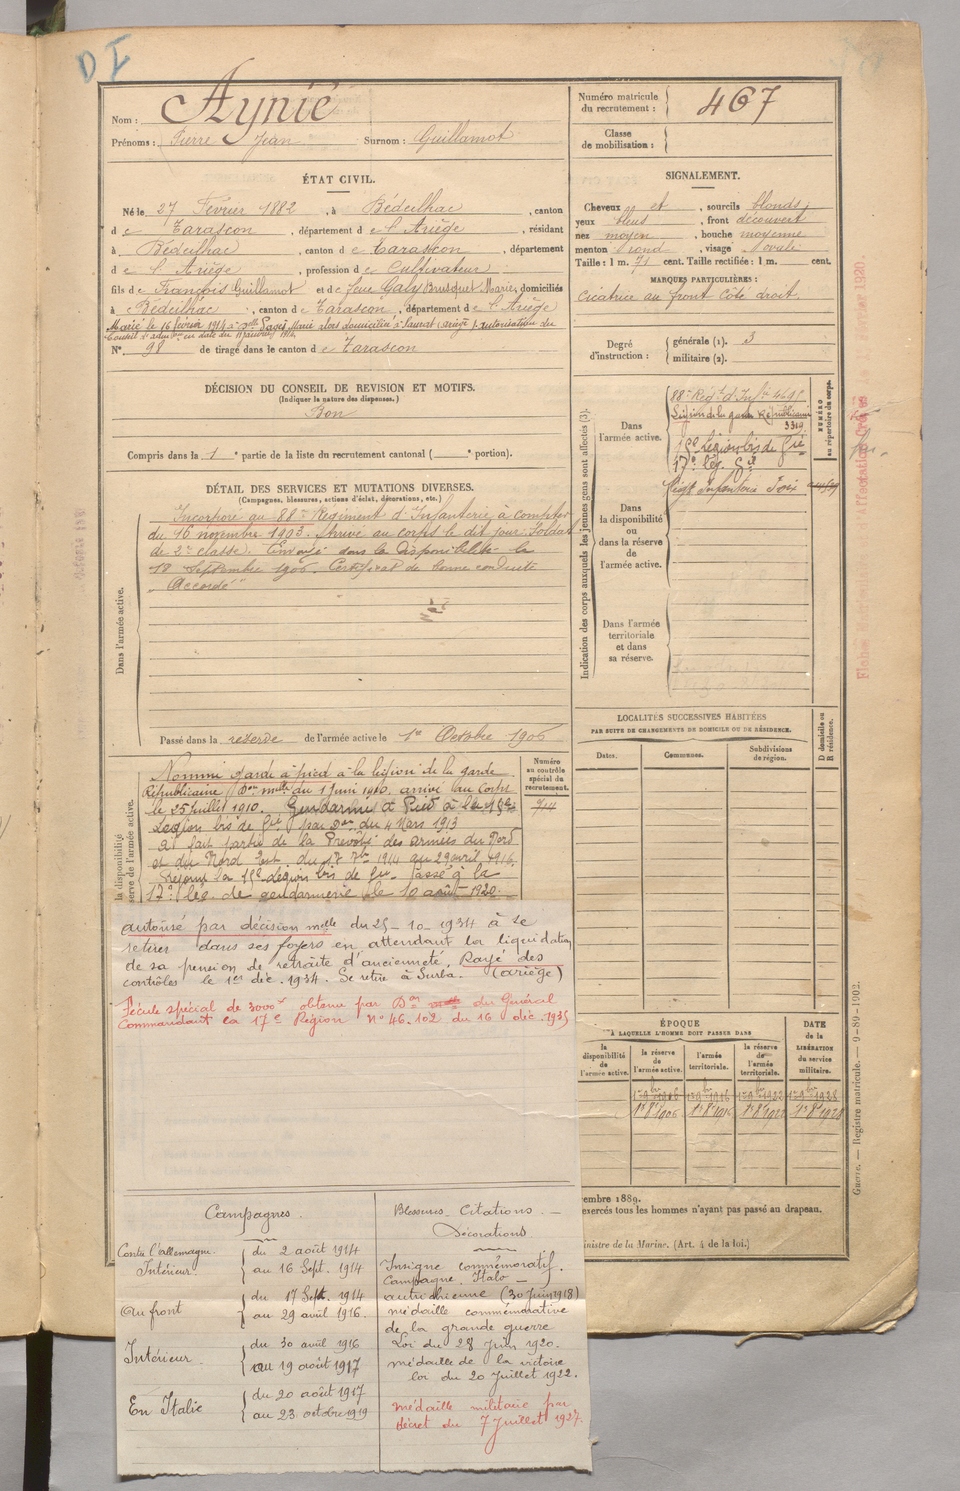 D I
Nom : Aynié
Prénoms : Pierre Jean Surnom : Guillamot
ÉTAT CIVIL.
Né le 27 Février 1882, à Bédeilhac, canton
d e Tarascon, département d e l'Ariège, résidant
à Bédeilhac, canton d e Tarascon, département
d e l'Ariège, profession d e Cultivateur
fils d e François Guillamot et d e Galy Brusquet Marie, domiciliés
à Bédeilhac, canton d e Tarascon, département d e l'Ariège
Marié le 16 février 1914 à Pagès Marie domiciliée à Saurat (Ariège) autorisation du
Conseil d'adm en date du janvier 1914
N° 98 de tirage dans le canton d e Tarascon
DÉCISION DU CONSEIL DE REVISION ET MOTIFS.
(Indiquer la nature des dispenses.)
Bon
Compris dans la 1e partie de la liste du recrutement cantonal ( e portion).
DÉTAIL DES SERVICES ET MUTATIONS DIVERSES.
(Campagnes, blessures, actions d'éclat, décorations, etc.)
Dans l'armée active.
Incorporé au 88me Régiment d'Infanterie à compter
du 16 novembre 1903. Arrivé au corps le dit jour. Soldat
de 2e classe. Envoyé dans la Disponibilité le
18 Septembre 1906. Certificat de bonne conduite
"Accordé"
Passé dans la réserve de l'armée active le 1er Octobre 1906
la disponibilité
serve de l'armée active.
Nommé garde à pied à la légion de la garde
Républicaine Don mlle du 1 Juin 1910. arrivé au corps
le 25 juillet 1910. Gendarme à Pied à la 15e
Légion bis de Gie par Don du 4 Mars 1913
a fait partie de la Prévôté des armées du Nord
et du Nord Est. du 17 7bre 1914 au 29 avril 1916.
Rejoint la 15e légion bis de Gie. Passé à la
17e lég. de gendarmerie le 10 août 1920.
Numéro
au contrôle
spécial du
recrutement.
autorisé par décision mlle du 25-10-1934 à se
retirer dans ses foyers en attendant la liquidation
de sa pension de retraite d'ancienneté. Rayé des
contrôles le 1er déc. 1934. Se retire à Surba. (ariège)
Pécule spécial de 3000f obtenu par Don du Général
Commandant la 17e Région N° 46.102 du 16 déc. 1935
Campagnes.
Contre l'Allemagne.
Intérieur. du 2 août 1914
au 16 Sept. 1914
Au front du 17 Sept. 1914
au 29 avril 1916.
Intérieur du 30 avril 1916
au 19 août 1917
En Italie du 20 août 1917
au 23 octobre 1919
Blessures. Citations. —
Décorations
Insigne commémoratif.
Campagne Italo —
autrichienne (30 juin 1918)
médaille commémorative
de la grande guerre
Loi du 28 Juin 1920.
médaille de la victoire
loi du 20 Juillet 1922.
médaille militaire par
décret du 7 Juillet 1927.
Numéro matricule
du recrutement : 467
Classe
de mobilisation :
SIGNALEMENT.
Cheveux et, sourcils blonds,
yeux bleus, front découvert
nez moyen, bouche moyenne
menton rond, visage ovale
Taille : 1 m. 71 cent. Taille rectifiée : 1 m. cent.
MARQUES PARTICULIÈRES :
Cicatrice au front côté droit.
Degré
d'instruction : générale (1). 3
militaire (2).
Indication des corps auxquels les jeunes gens sont affectés (3).
Dans
l'armée active.
88me Régt d'Infie 4695
Légion de la garde Républicaine
3319
15e Légion bis de Gie
17e Lég. Gie
NUMÉRO
au répertoire du corps.
Dans
la disponibilité
ou
dans la réserve
de
l'armée active.
Régt Infanterie Foix
Dans l'armée
territoriale
et dans
sa réserve.
LOCALITÉS SUCCESSIVES HABITÉES
PAR SUITE DE CHANGEMENTS DE DOMICILE OU DE RÉSIDENCE.
Dates. Communes. Subdivisions
de région.
D domicile ou
R résidence.
ÉPOQUE
À LAQUELLE L'HOMME DOIT PASSER DANS
la
disponibilité
de
l'armée active.
la réserve
de
l'armée active.
l'armée
territoriale.
la réserve
de
l'armée
territoriale.
DATE
de la
LIBÉRATION
du service
militaire.
1er 8bre 1906 1er 8bre 1916 1er 8bre 1922 1er 8bre 1928
embre 1889.
exercés tous les hommes n'ayant pas passé au drapeau.
inistre de la Marine. (Art. 4 de la loi.)
Guerre. — Registre matricule. — 9-89-1902.